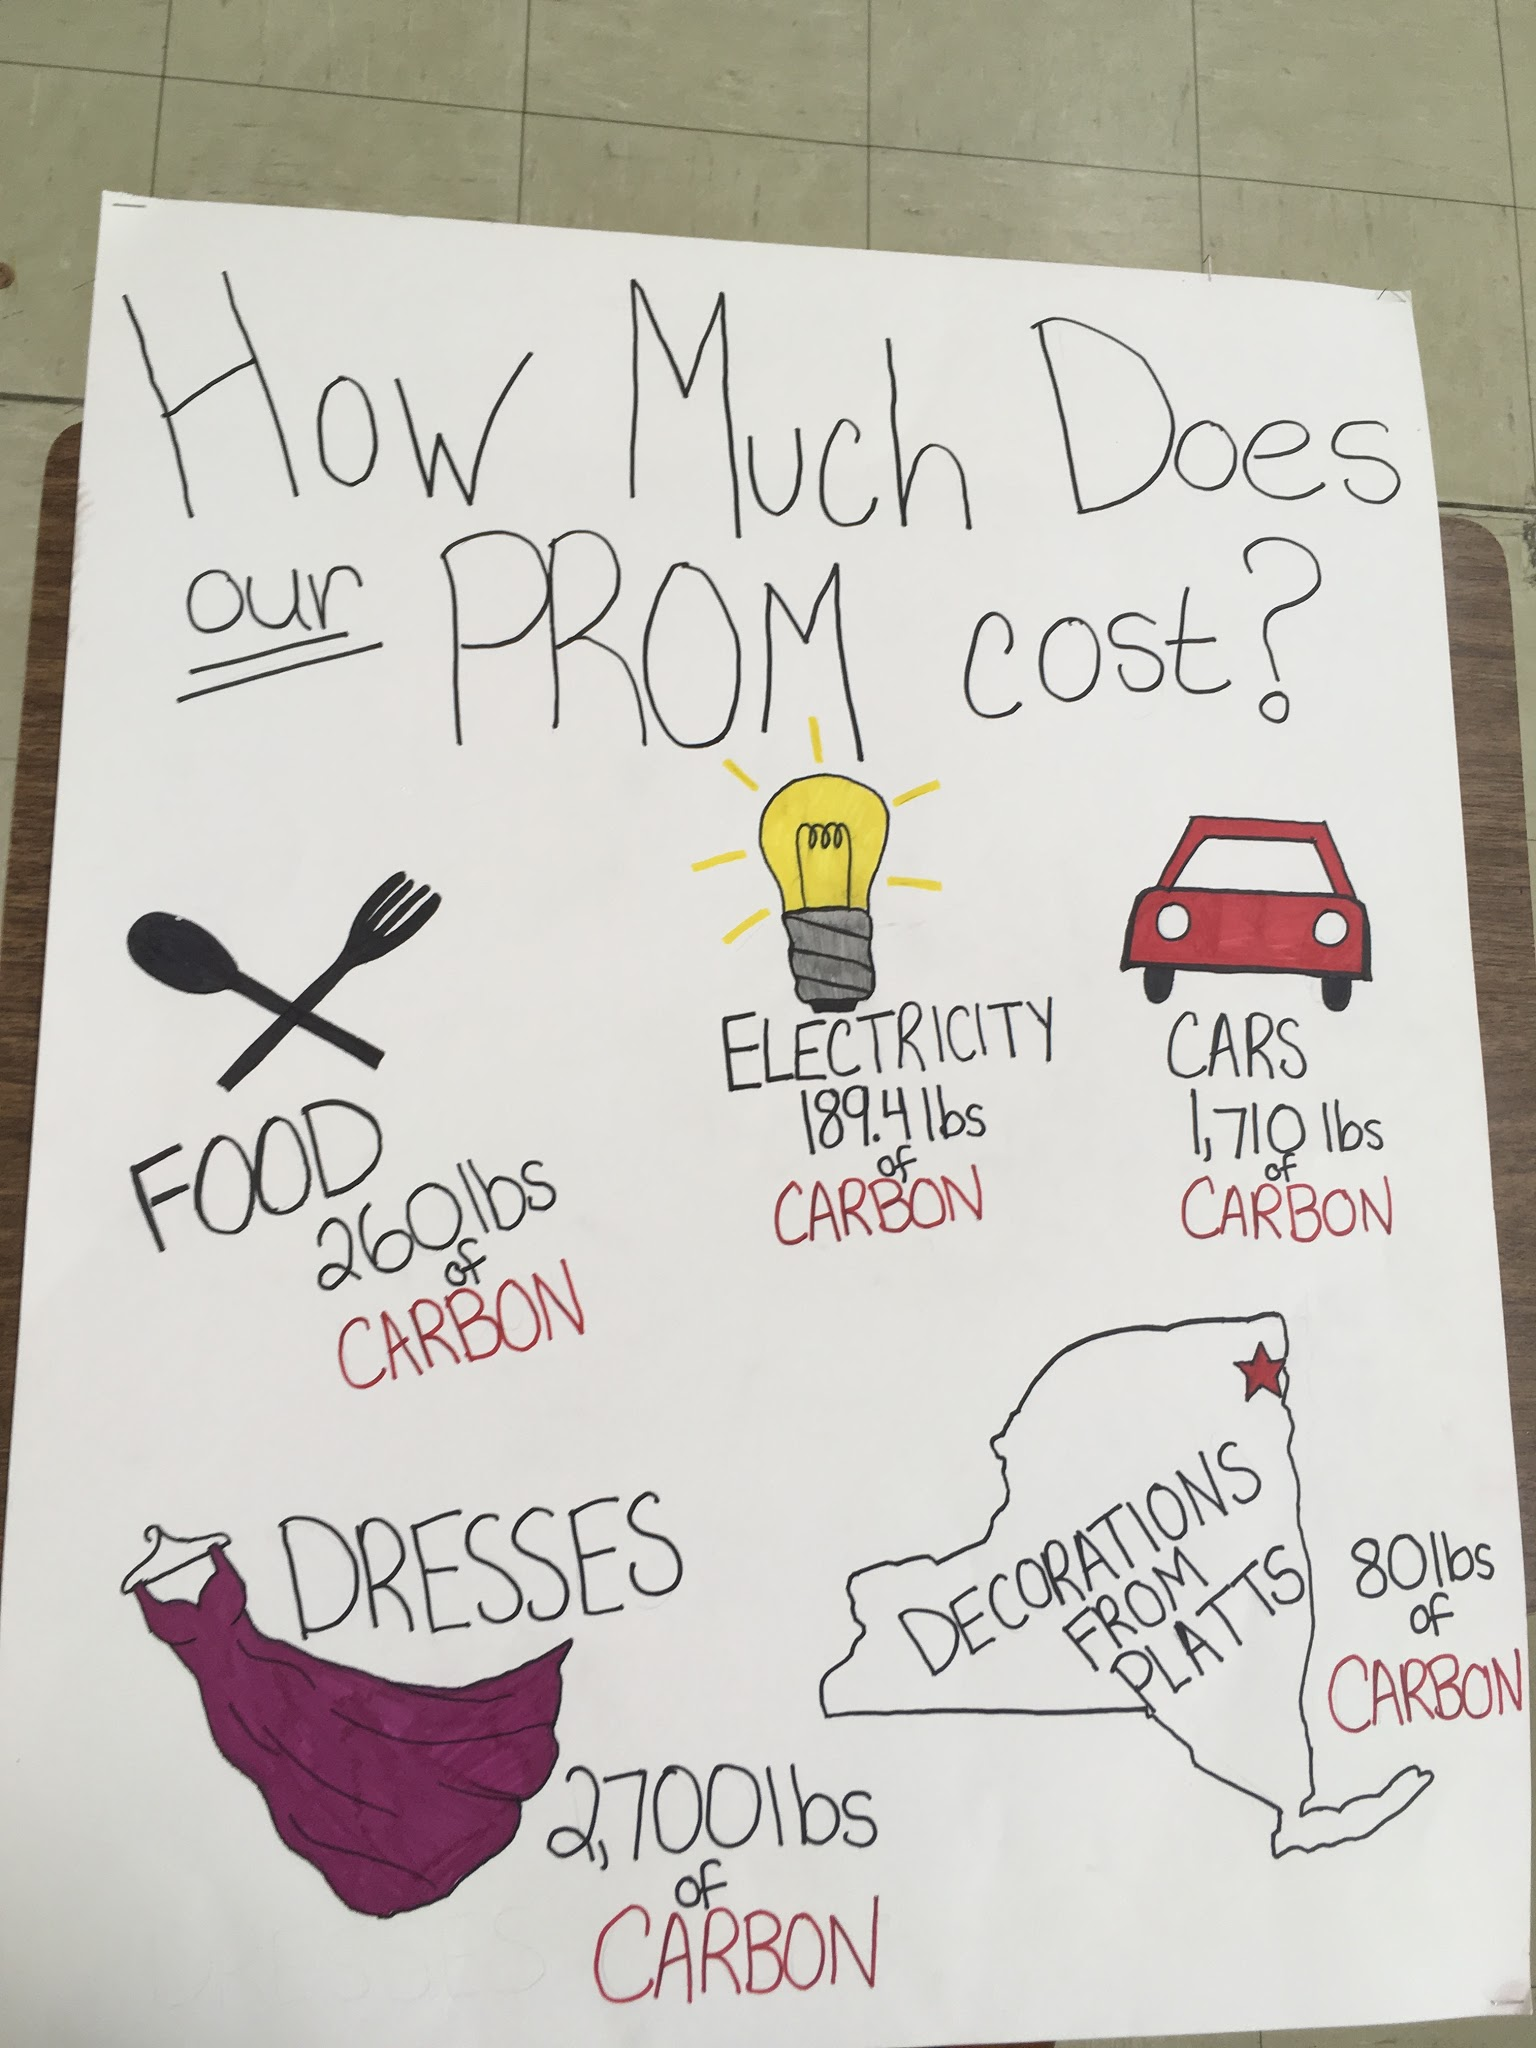 How Much Does
our PROM cost?
FOOD
260 lbs
of
CARBON
ELECTRICITY
189.4 lbs
of
CARBON
CARS
1,710 lbs
of
CARBON
DRESSES
2,700 lbs
of
CARBON
DECORATIONS
FROM
PLATTS
80 lbs
of
CARBON